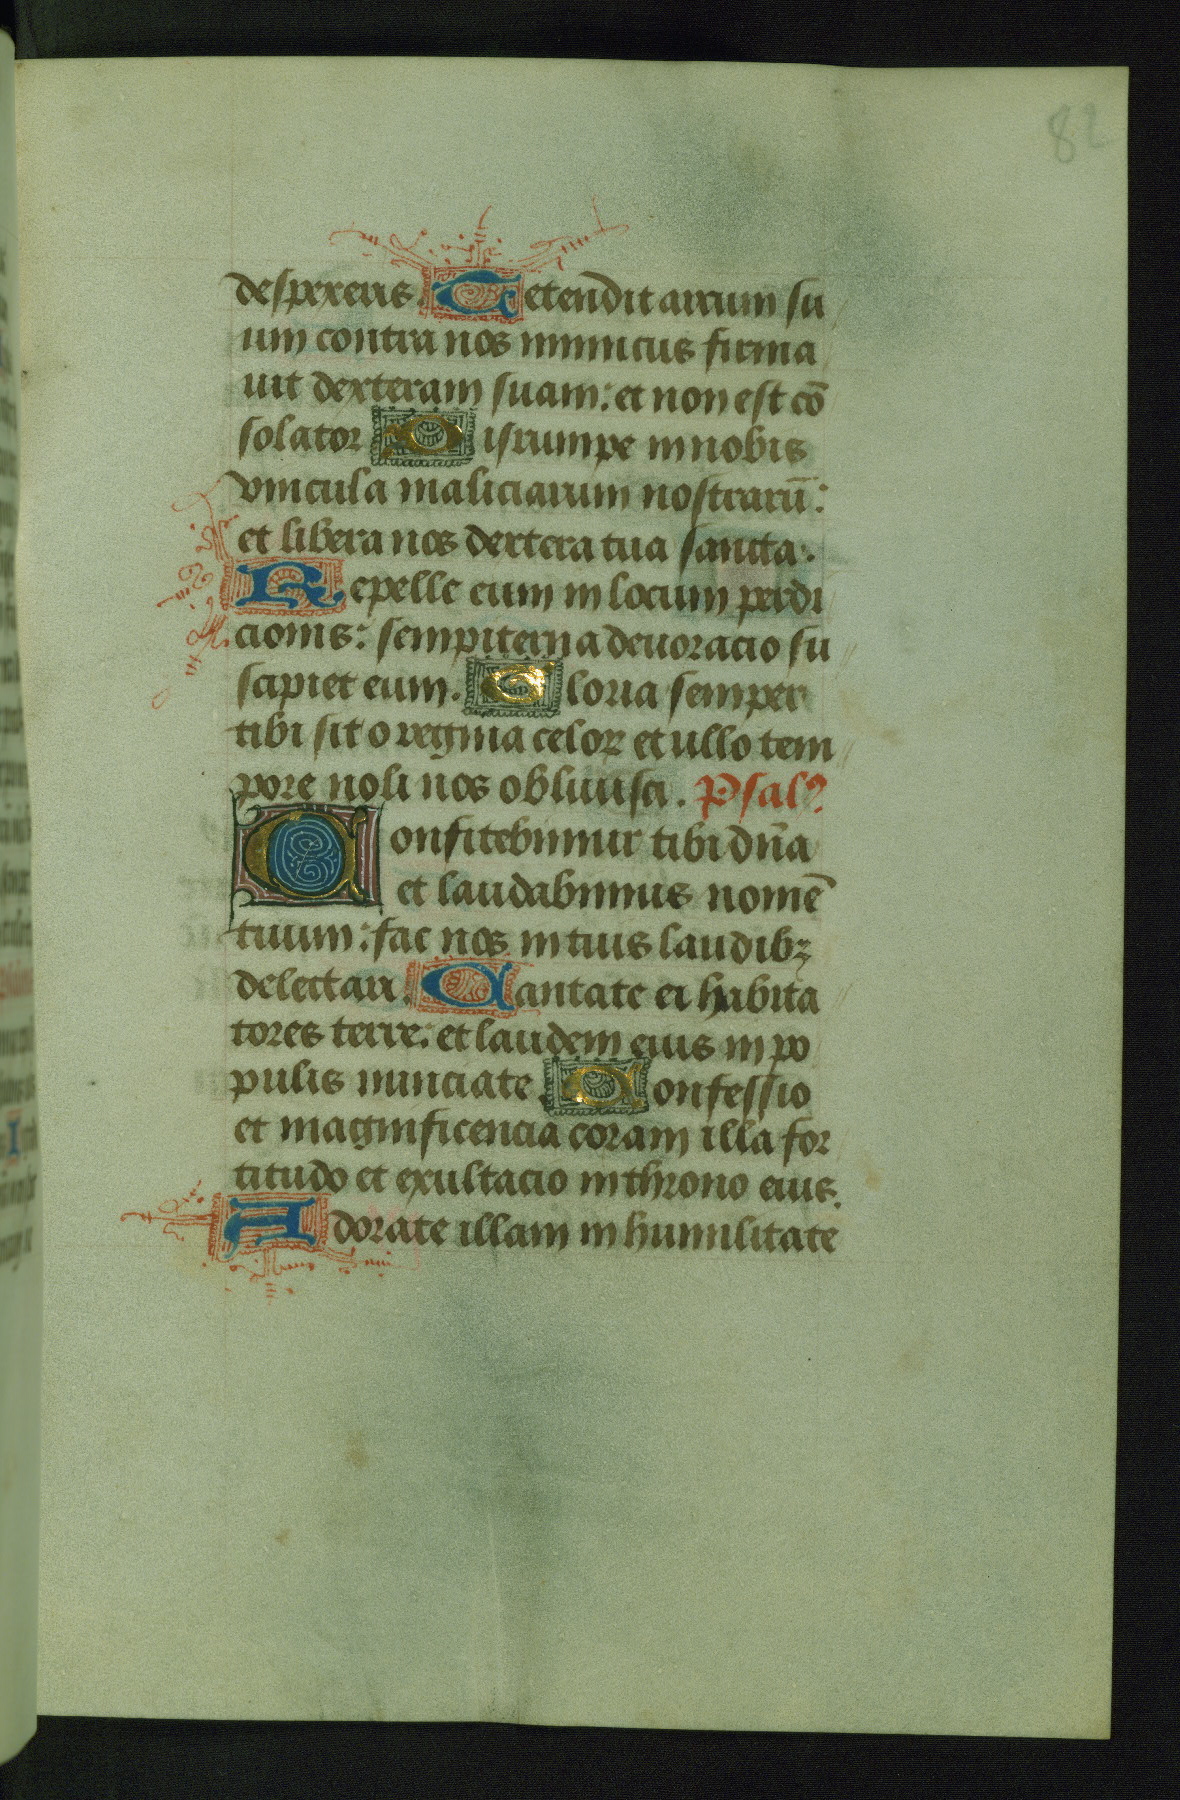 82
despexeris. Tetendit arcum su
um contra nos inimicus firma
uit dexteram suam: et non est cō
solator Disrumpe in nobis
vincula maliciarum nostrarū:
et libera nos dextera tua sancta.
Repelle eum in locum perdi
cionis: sempiterna deuoracio su
scipiet eum. Gloria semper
tibi sit o regina celoꝝ et ullo tem
pore noli nos obliuisci. Psalꝰ
Confitebimur tibi dn̄a
et laudabimus nomē
tuum: fac nos in tuis laudibꝫ
delectari. Cantate ei habita
tores terre: et laudem eius in po
pulis nunciate. Confessio
et magnificencia coram illa for
titudo et exultacio in throno eius.
Adorate illam in humilitate